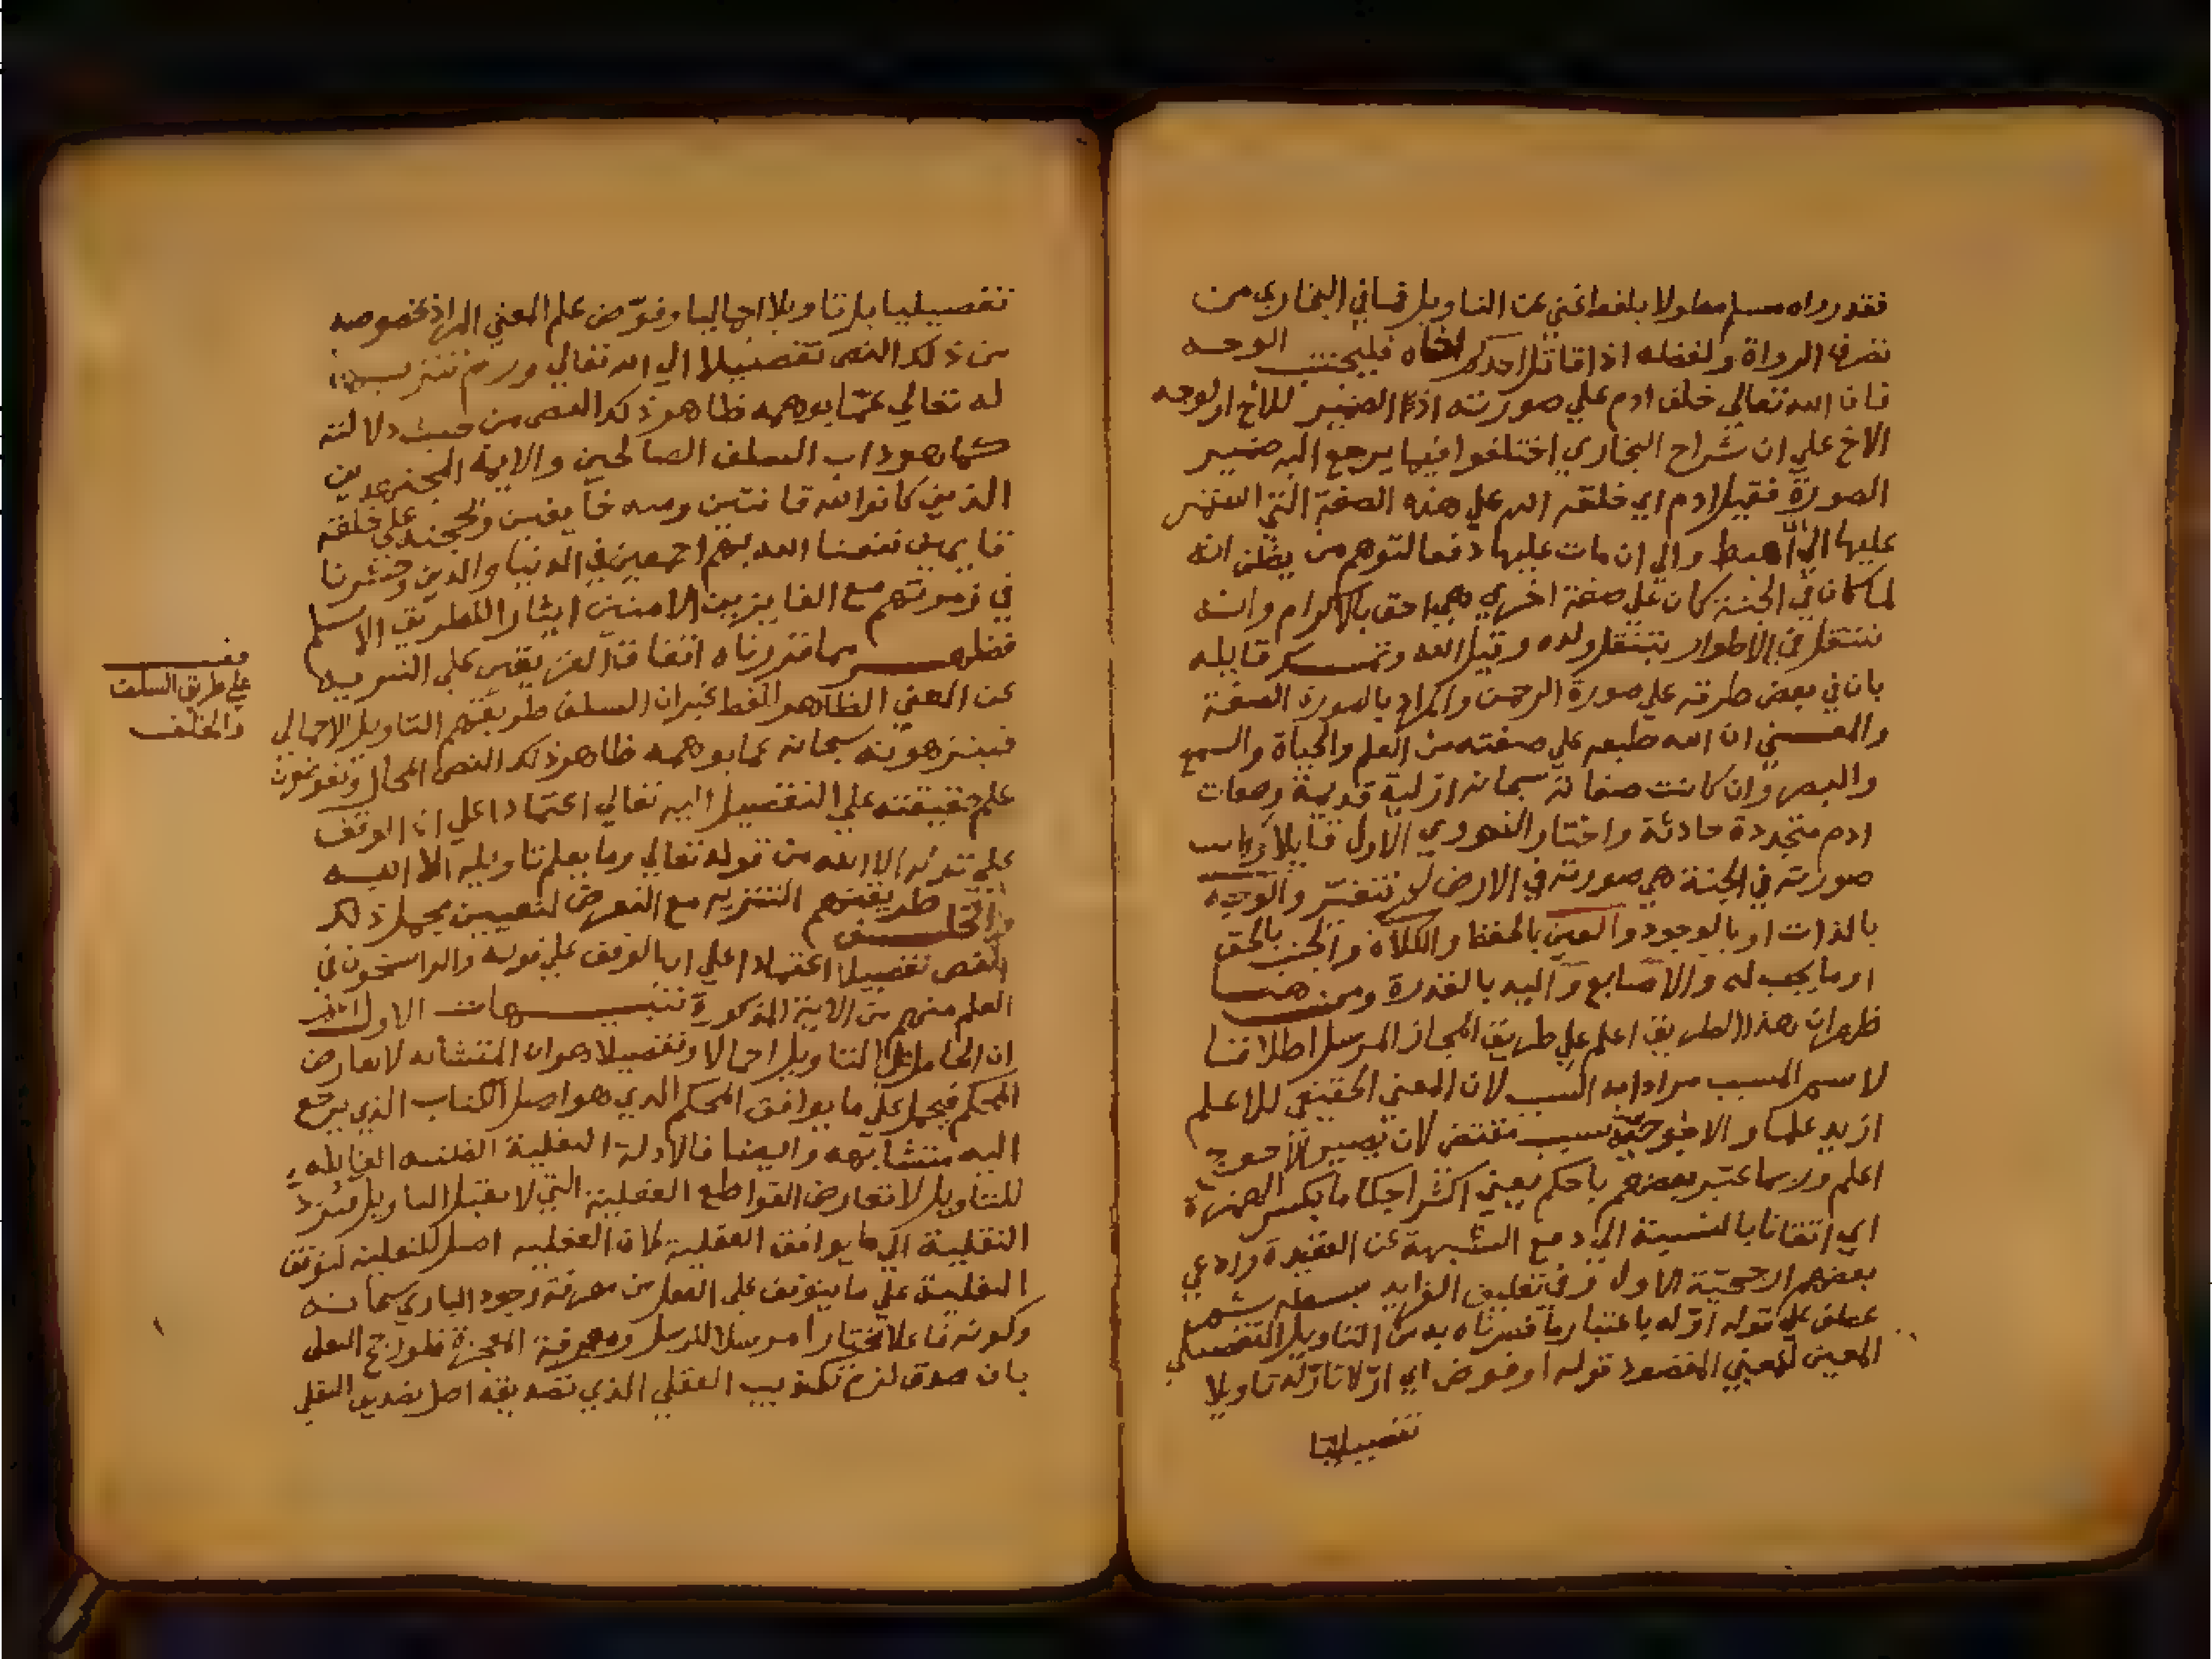 فقد رواه مسلم مطولا بلفظ اغني عن التاويل فما في البخاري من
تصرف الرواة ولفظه اذا قاتل احدكم اخاه فليجتنب الوجه
فان الله تعالي خلق ادم علي صورته اذ الضمير للاخ او لوجه
الاخ علي ان شراح البخاري اختلفوا فيما يرجع اليه ضمير
الصورة فقيل لادم اي خلقه الله علي هذه الصفة التي استمر
عليها الي ان اهبط والي ان مات عليها دفعا لتوهم من يظن انه
لما كان في الجنة كان علي صفة اخري هي احق بالاكرام وانه
تنتقل في الاطوار تنتقل ولده وقيل لله وتمسك قايله
بان في بعض طرقه علي صورة الرحمن والمراد بالصورة الصفة
والمعني ان الله طبعه علي صفته من العلم والحياة والسمع
والبصر وان كانت صفاته سبحانه ازلية قديمة وصفات
ادم متجددة حادثة واختار النووي الاول قايلا وكانت
صورته في الجنة هي صورته في الارض لم تتغير والوجه
بالذات او بالوجود والعين بالحفظ والكلاة والجنب بالحق
او ما يجب له والاصابع واليد بالقدرة ومن هنا
ظهر ان هذا الطريق اعلم علي طريق المجاز المرسل اطلاقا
لاسم المسبب مرادا به السبب لان المعني الحقيقي للاعلم
ازيد علما والاحوجية سبب مقتض لان يصير الاحوج
اعلم وربما عتبر بعضهم باحكم يعني اكثر احكاما بكسر الهمزة
اي اتقانا بالنسبة الي دفع الشبهة عن العقيدة وادعي
بعضهم ارجحية الاول في تعليق الفرايد بسطه شم
عطف علي قوله اوله باعتبار ما فسرناه به من التاويل التفصيلي
المعين للمعني المقصود قوله او فوض اي اولا تاوله تاويلا
تفصيليا
تفصيليا بل تاويلا اجماليا وفوض علم المعني المراد بخصوصه
من ذلك النص تفصيلا الي الله تعالي ورم تنزيها
له تعالي عما يوهمه ظاهر ذلك النص من حيث دلالته
كما هو داب السلف الصالحين والايمة المجتهدين
الذين كانوا لله قانتين ومنه خايفين وبحجته علي خلقه
قايمين نفعنا الله بهم اجمعين في الدنيا والدين وحشرنا
في زمرتهم مع الفايزين الامنين ايثارا للطريق الاسلم
فظهر مما قررناه اتفاق الفريقين علي التنزيه
عن المعني الظاهر للفظ غير ان السلف طريقتهم التاويل الاجمالي
فينزهونه سبحانه عما يوهمه ظاهر ذلك النص المحال ويفوضون
علم حقيقته علي التفصيل اليه تعالي اعتمادا علي ان الوقف
علي قوله الا الله من قوله تعالي وما يعلم تاويله الا الله
والخلف طريقتهم التنزيه مع التعرض لتعيين محمل ذلك
النص تفصيلا اعتمادا علي ان الوقف علي قوله والراسخون في
العلم منهم من الاية المذكورة تنبيهات الاول اعلم
ان الحامل علي التاويل اجمالا وتفصيلا هو ان المتشابه لا يعارض
المحكم فيحمل علي ما يوافق المحكم الذي هو اصل الكتاب الذي يرجع
اليه متشابهه وايضا فالادلة النقلية الظنية القابلة
للتاويل لا تعارض القواطع العقلية التي لا تقبل التاويل فترد
النقلية الي ما يوافق العقلية لان العقلية اصل للنقلية لتوقف
النقلية علي ما يتوقف علي العقل من معرفة وجود الباري سبحانه
وكونه فاعلا مختارا مرسلا للرسل ومعرفة المعجزة فلو رجح النقل
بان صدق لزم تكذيب العقلي الذي تصديقه اصل تصديق النقلي
قف
علي طريق السلف
والخلف